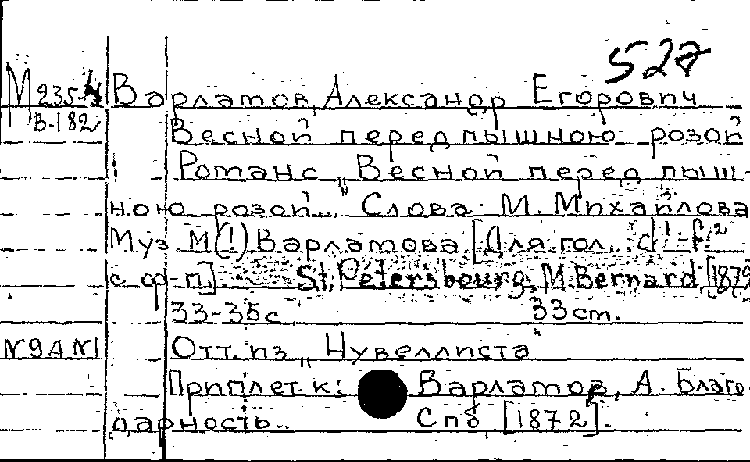 527
М 235-4 Варламов, Александр Егорович
В-182 Весной перед пышною розой
Романс „Весной перед пыш-
ною розой". Слова М. Михайлова
Муз М(!) Варламова. [Для гол. d¹-f² 
с ф-п.] St. Petersbourg, M. Bernard, [1872
33-35 с 33 cm.
Отт. из „Нувеллиста"
Приплет. к: Варламов, А. Благо-
дарность. Спб [1872].